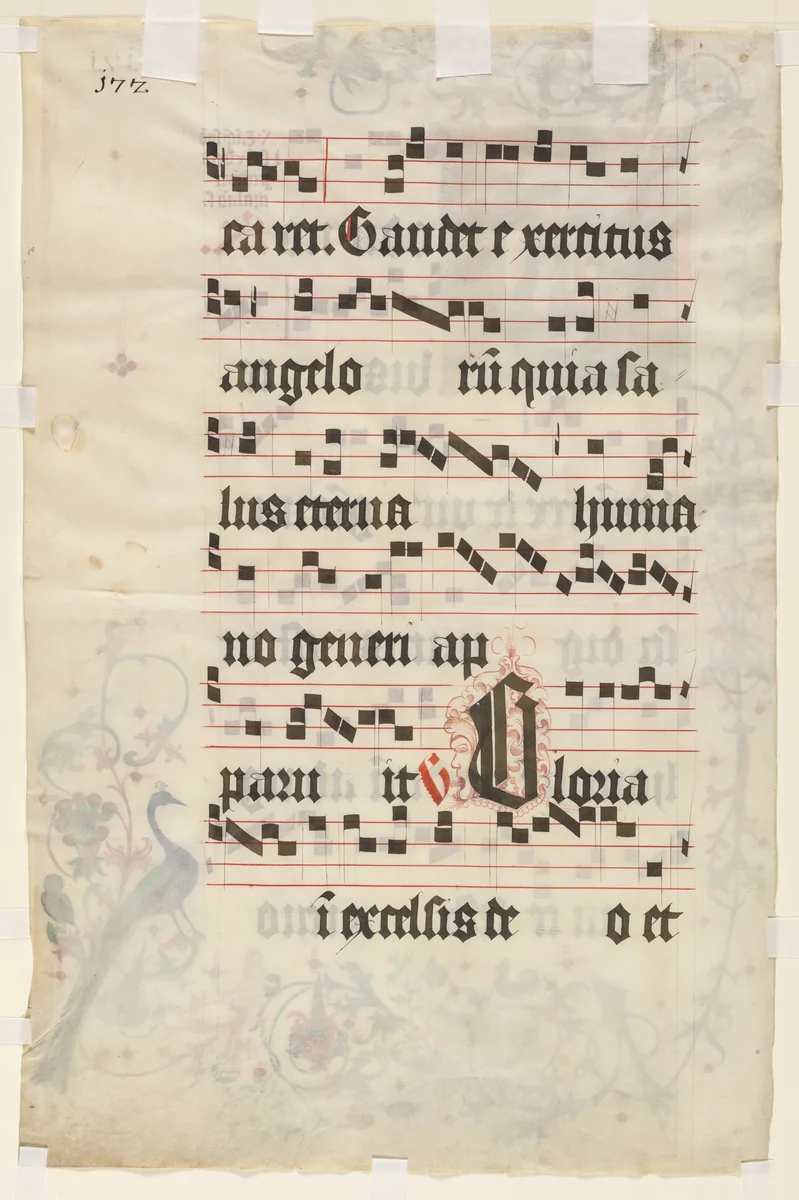 177
caret. Gaudet exercitus
angelorū quia sa
lus eterna huma
no generi ap
paruit G Gloria
ī excelsis deo et